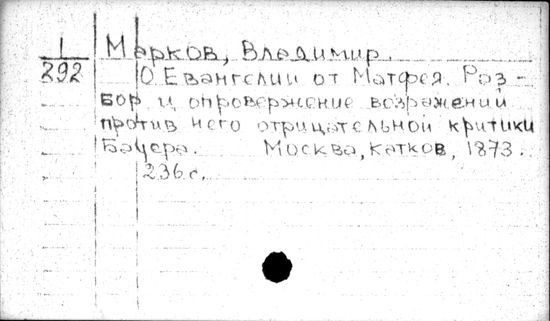 1
292
Марков, Владимир.
О Евангелии от Матфея. Раз-
бор и опровержение возражений
против него отрицательной критики
Бауера. Москва, Катков, 1873.
236 с.